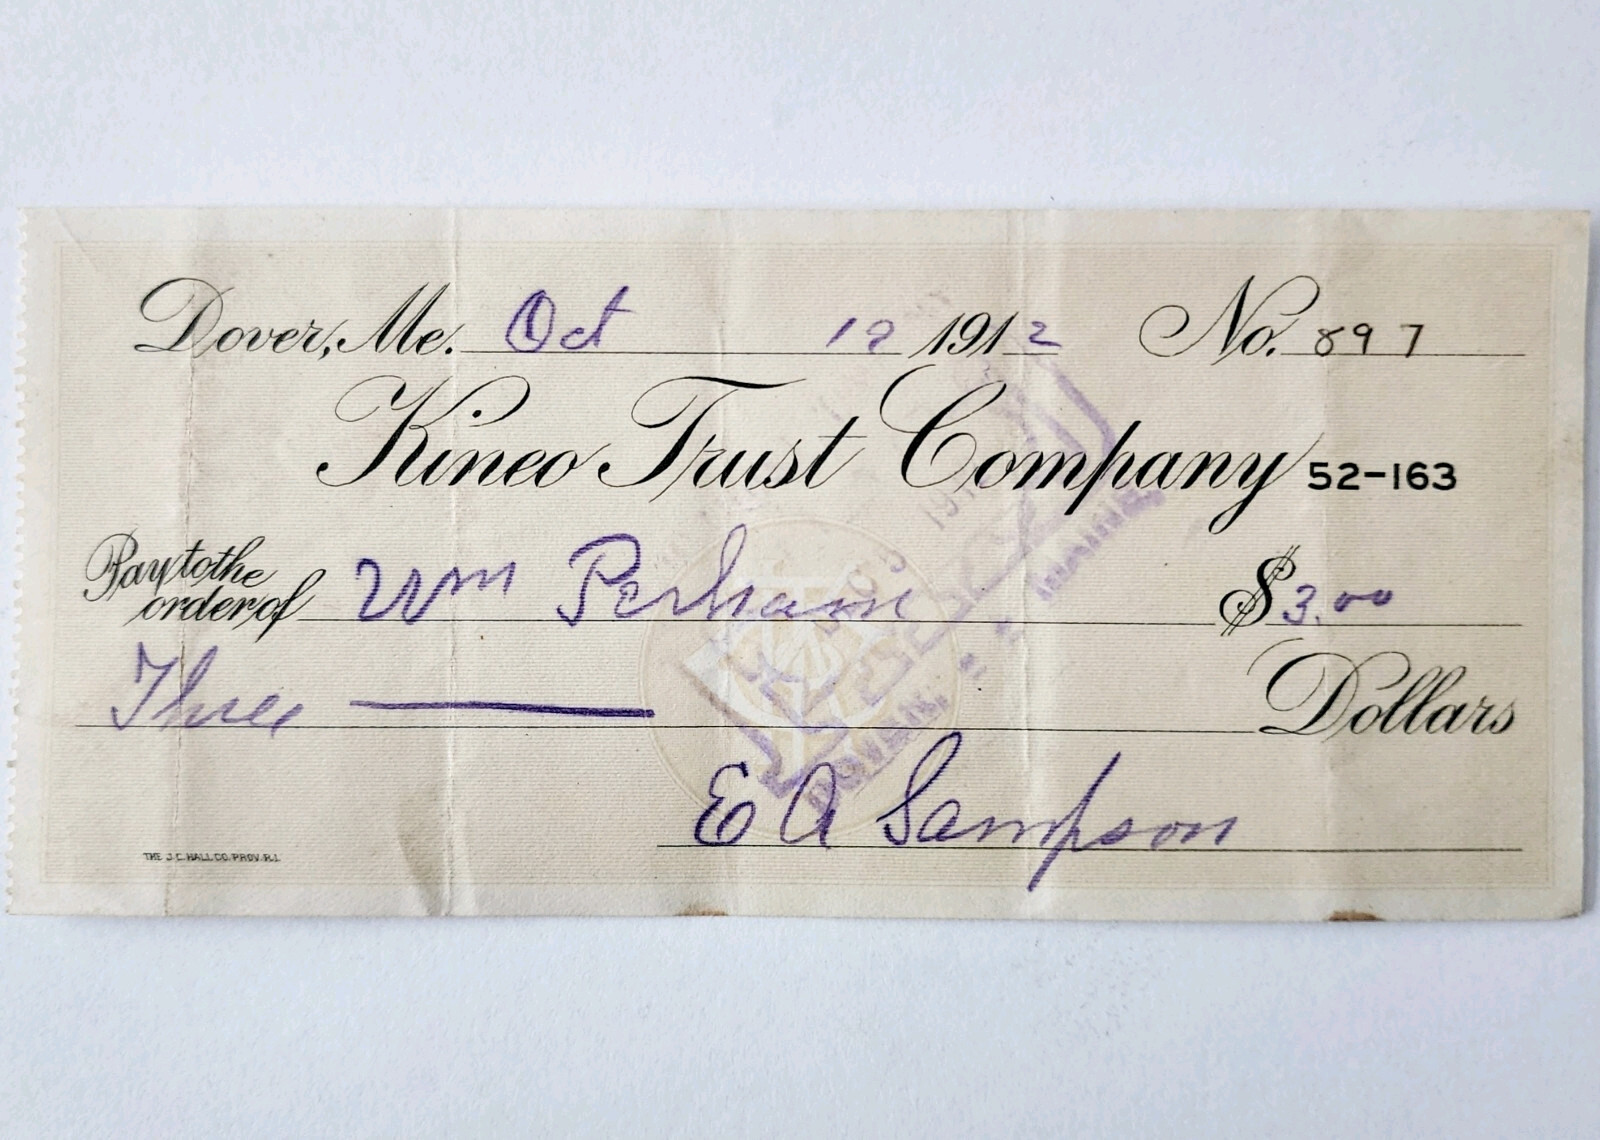 Dover, Me. Oct 1912 No. 897
Kineo Trust Company 52-163
Pay to the
order of Wm Perham $3.00
Three Dollars
E A Sampson
THE J.C. HALL CO. PROV. R.I.